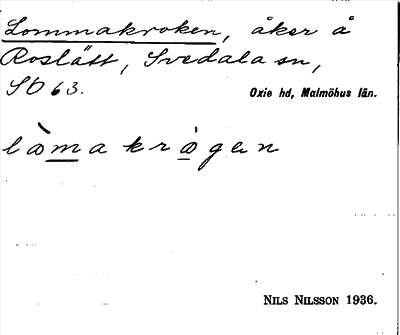 Lommakroken, åker å
Roslätt, Svedala sn,
SO 63.
Oxie hd, Malmöhus län.
lòma krȯgen
NILS NILSSON 1936.